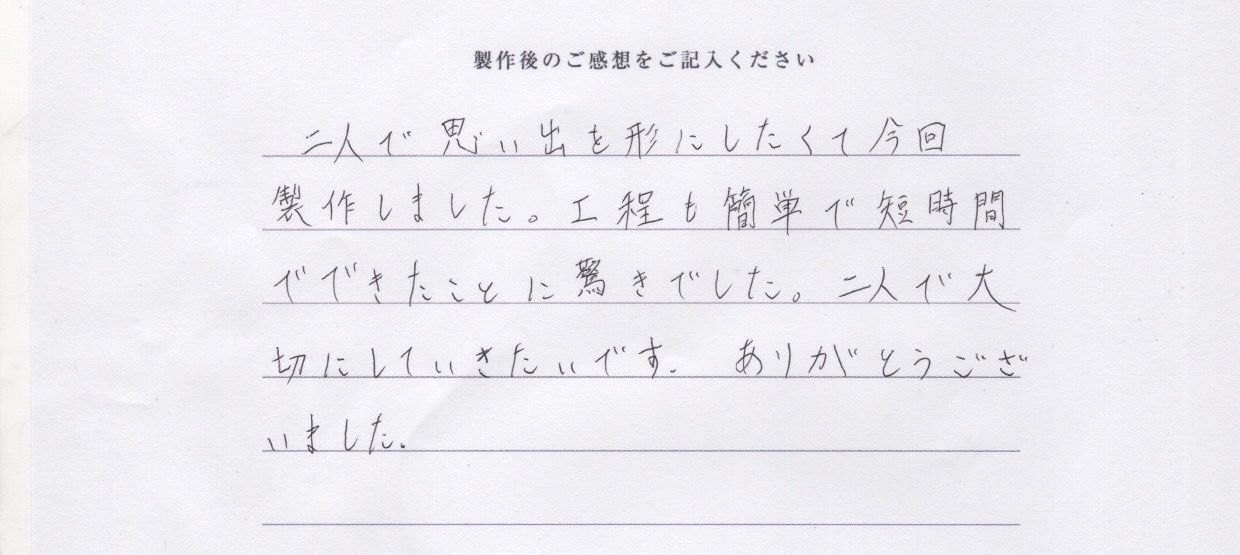 製作後のご感想をご記入ください
二人で思い出を形にしたくて今回
製作しました。工程も簡単で短時間
でできたことに驚きでした。二人で大
切にしていきたいです。ありがとうござ
いました。